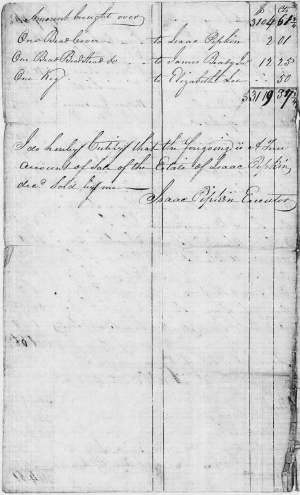 $ Cts
Amount brought over 3104 61 1/2
One Bead Cover to Isaac Pipkin 2 01
One Bead Bedstead &c to James Brady Jr 12 25
One Keg to Elizabeth Lee 50
$3119 37 1/2
I do hereby Certify that the forgoing is A True
account of Sale of the Estate of Isaac Pipkin
decd sold by me
Isaac Pipkin Executor